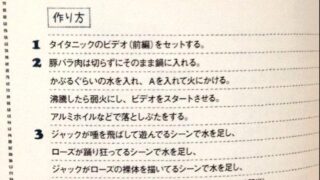 作り方
1 タイタニックのビデオ(前編)をセットする。
2 豚バラ肉は切らずにそのまま鍋に入れる。
かぶるぐらいの水を入れ、Aを入れて火にかける。
沸騰したら弱火にし、ビデオをスタートさせる。
アルミホイルなどで落としぶたをする。
3 ジャックが唾を飛ばして遊んでるシーンで水を足し、
ローズが踊り狂ってるシーンで水を足し、
ジャックがローズの裸体を描いてるシーンで水を足し、